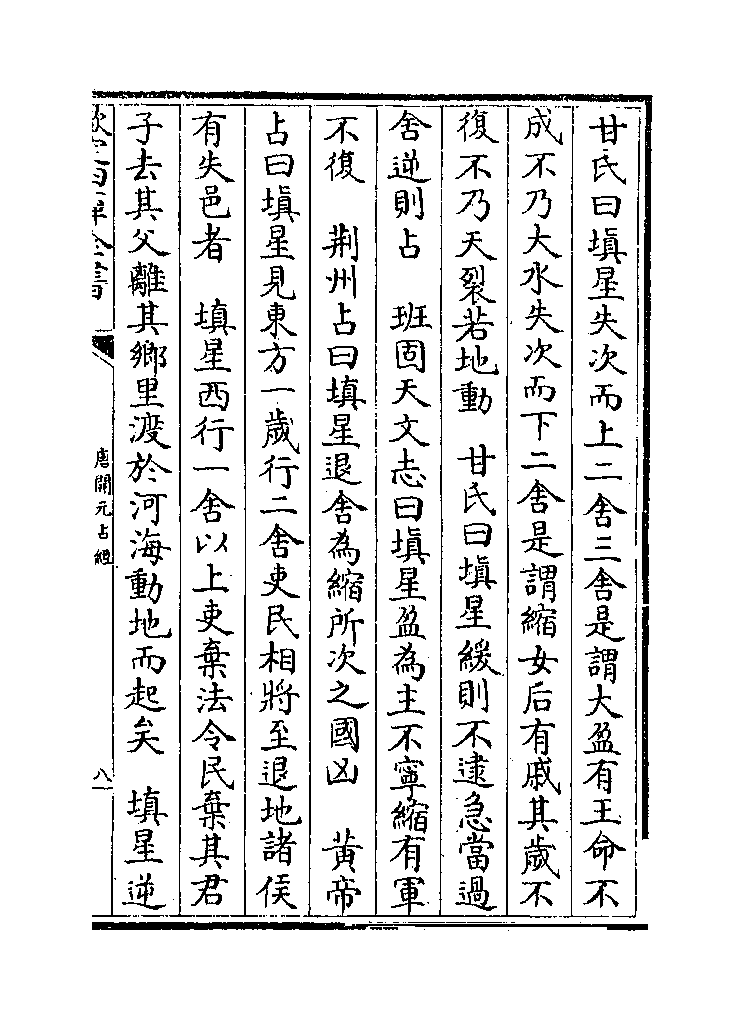 甘氏曰填星失次而上二舍三舍是謂大盈有王命不
成不乃大水失次而下二舍是謂縮女后有戚其歲不
復不乃天裂若地動　甘氏曰填星緩則不逮急當過
舍逆則占　班固天文志曰填星盈為主不寧縮有軍
不復　荆州占曰填星退舍為縮所次之國凶　黄帝
占曰填星見東方一歲行二舍吏民相將至退地諸侯
有失邑者　填星西行一舍以上吏棄法令民棄其君
子去其父離其鄉里渡於河海動地而起矣　填星逆
欽定四庫全書
唐開元占經
八